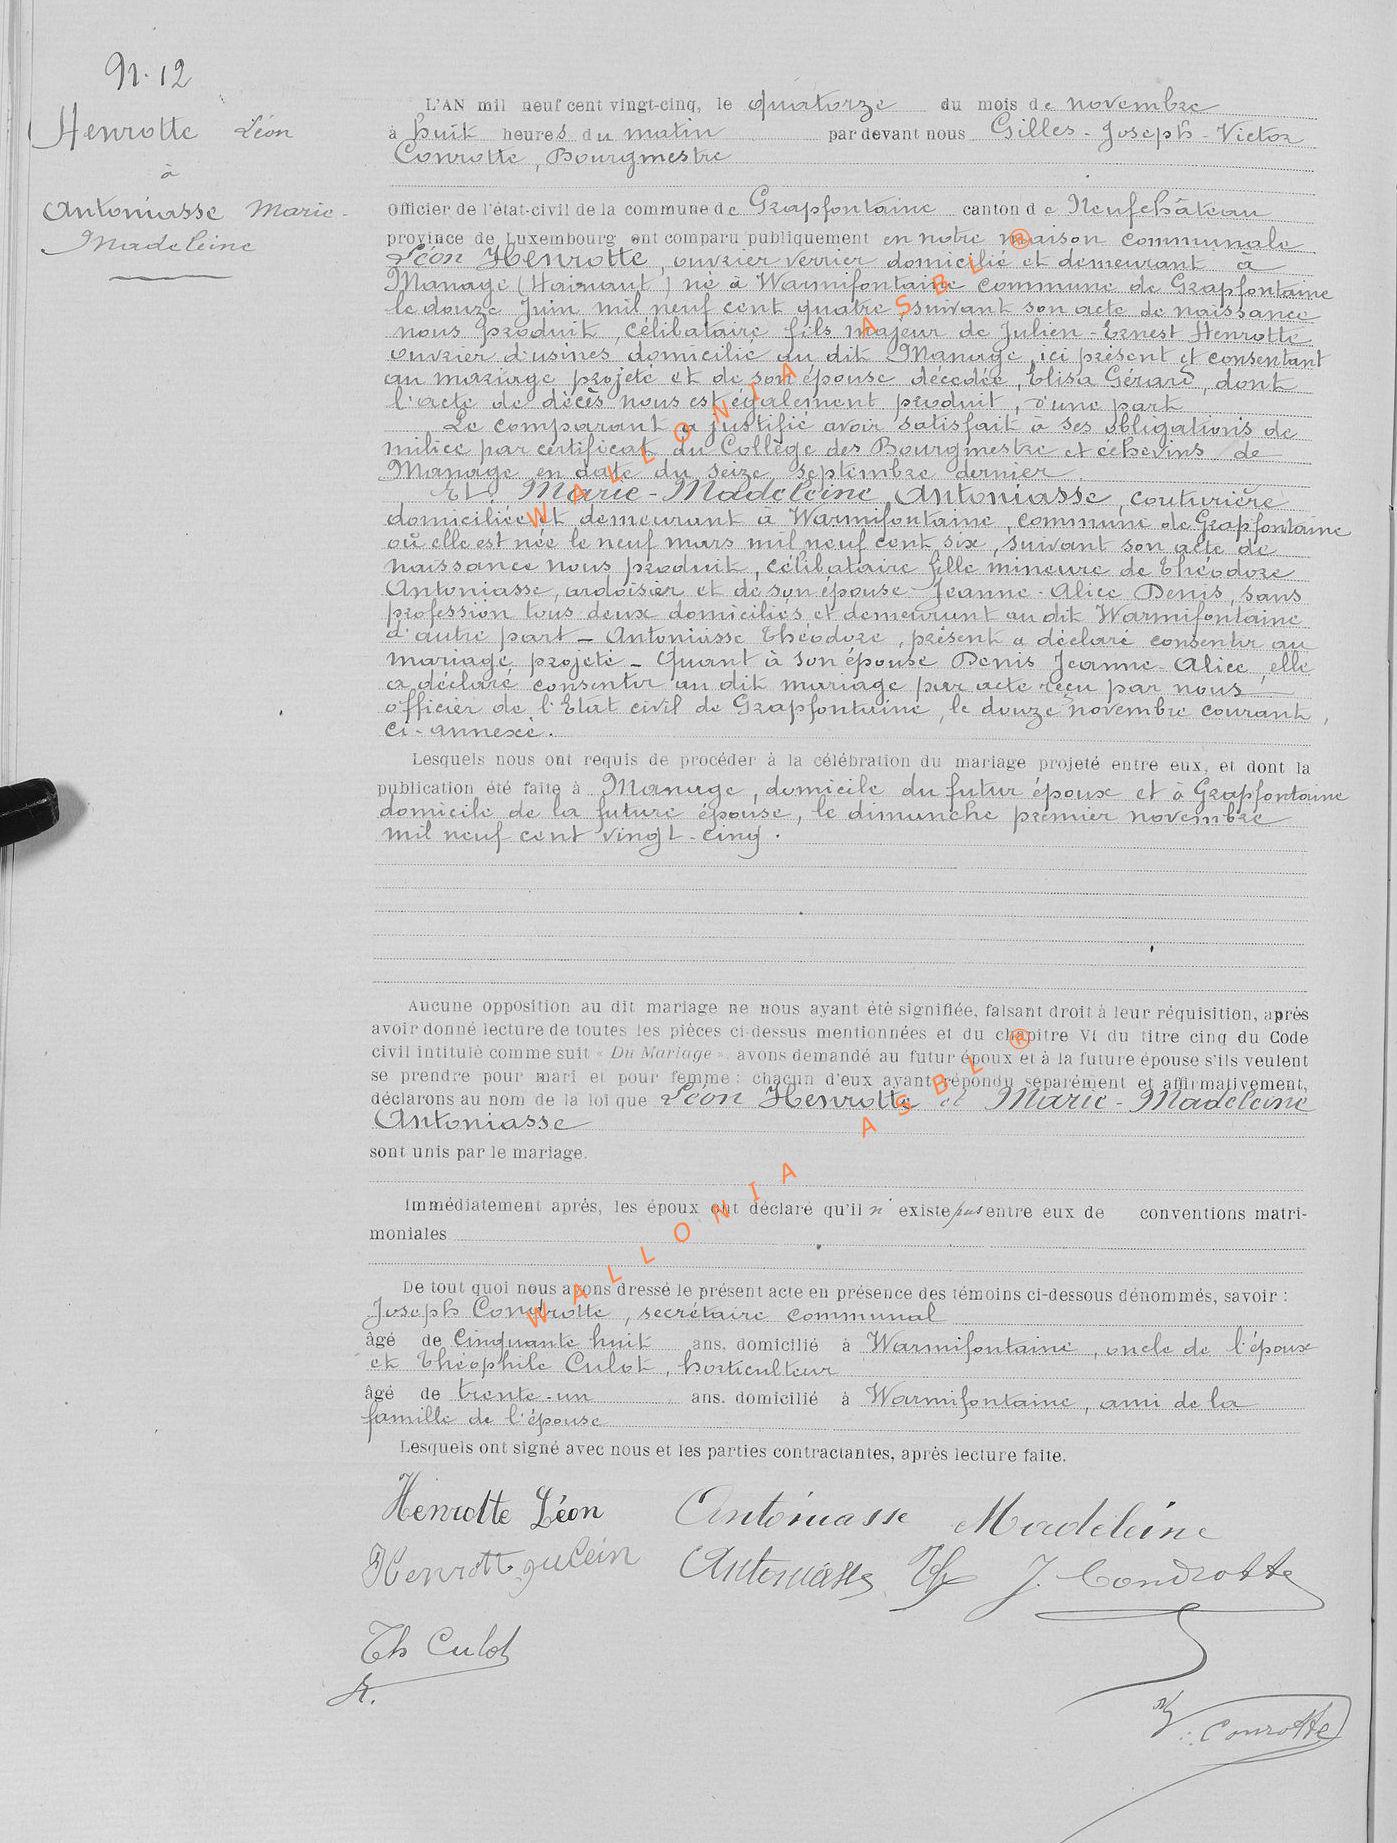 N. 12
Henrotte Léon
à
Antoniasse Marie-
Madeleine
L'AN mil neuf cent vingt-cinq, le quatorze du mois de novembre
à huit heures du matin par devant nous Gilles-Joseph-Victor
Conrotte, Bourgmestre
officier de l'état-civil de la commune de Grapfontaine canton de Neufchâteau
province de Luxembourg ont comparu publiquement en notre maison communale
Léon Henrotte, ouvrier verrier domicilié et demeurant à
Manage (Hainaut) né à Warmifontaine commune de Grapfontaine
le douze Juin mil neuf cent quatre, suivant son acte de naissance
nous produit, célibataire fils majeur de Julien-Ernest Henrotte
ouvrier d'usines domicilié au dit Manage, ici présent et consentant
au mariage projeté et de son épouse décédée, Elisa Gérard, dont
l'acte de décès nous est également produit, d'une part
Le comparant a justifié avoir satisfait à ses obligations de
milice par certificat du Collège des Bourgmestre et échevins de
Manage en date du seize septembre dernier
Et Marie-Madeleine Antoniasse, couturière
domiciliée et demeurant à Warmifontaine, commune de Grapfontaine
où elle est née le neuf mars mil neuf cent six, suivant son acte de
naissance nous produit, célibataire fille mineure de Théodore
Antoniasse, ardoisier et de son épouse Jeanne-Alice Denis, sans
profession tous deux domiciliés et demeurant au dit Warmifontaine
d'autre part - Antoniasse Théodore, présent a déclaré consentir au
mariage projeté - Quant à son épouse Denis Jeanne-Alice, elle
a déclaré consentir au dit mariage par acte reçu par nous
officier de l'Etat civil de Grapfontaine, le douze novembre courant,
ci-annexé.
Lesquels nous ont requis de procéder à la célébration du mariage projeté entre eux, et dont la
publication été faite à Manage, domicile du futur époux et à Grapfontaine
domicile de la future épouse, le dimanche premier novembre
mil neuf cent vingt-cinq.
Aucune opposition au dit mariage ne nous ayant été signifiée, faisant droit à leur réquisition, après
avoir donné lecture de toutes les pièces ci-dessus mentionnées et du chapitre VI du titre cinq du Code
civil intitulé comme suit « Du Mariage », avons demandé au futur époux et à la future épouse s'ils veulent
se prendre pour mari et pour femme : chacun d'eux ayant répondu séparément et affirmativement,
déclarons au nom de la loi que Léon Henrotte et Marie-Madeleine
Antoniasse
sont unis par le mariage.
Immédiatement après, les époux ont déclaré qu'il n'existe pas entre eux de conventions matri-
moniales
De tout quoi nous avons dressé le présent acte en présence des témoins ci-dessous dénommés, savoir :
Joseph Condrotte, secrétaire communal
âgé de cinquante huit ans, domicilié à Warmifontaine, oncle de l'époux
et Théophile Culot, horticulteur
âgé de trente-un ans, domicilié à Warmifontaine, ami de la
famille de l'épouse
Lesquels ont signé avec nous et les parties contractantes, après lecture faite.
Henrotte Léon Antoniasse Madeleine
Henrotte Julein Antoniasse Th J. Condrotte
Th Culot
V. Conrotte
WALLONIA ASBL ®
WALLONIA ASBL ®